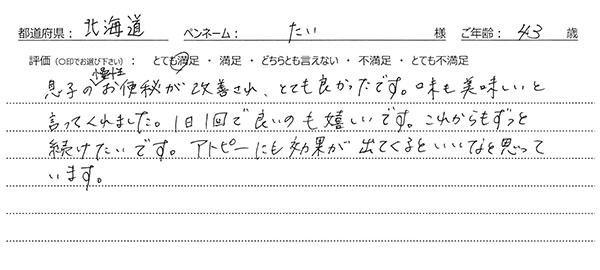 都道府県： 北海道 ペンネーム： たい 様 ご年齢： 43 歳
評価（○印でお選び下さい）： とても満足 ・ 満足 ・ どちらとも言えない ・ 不満足 ・ とても不満足
息子の慢性お便秘が改善され、とても良かったです。味も美味しいと
言ってくれました。1日1回で良いのも嬉しいです。これからもずっと
続けたいです。アトピーにも効果が出てくるといいなと思って
います。